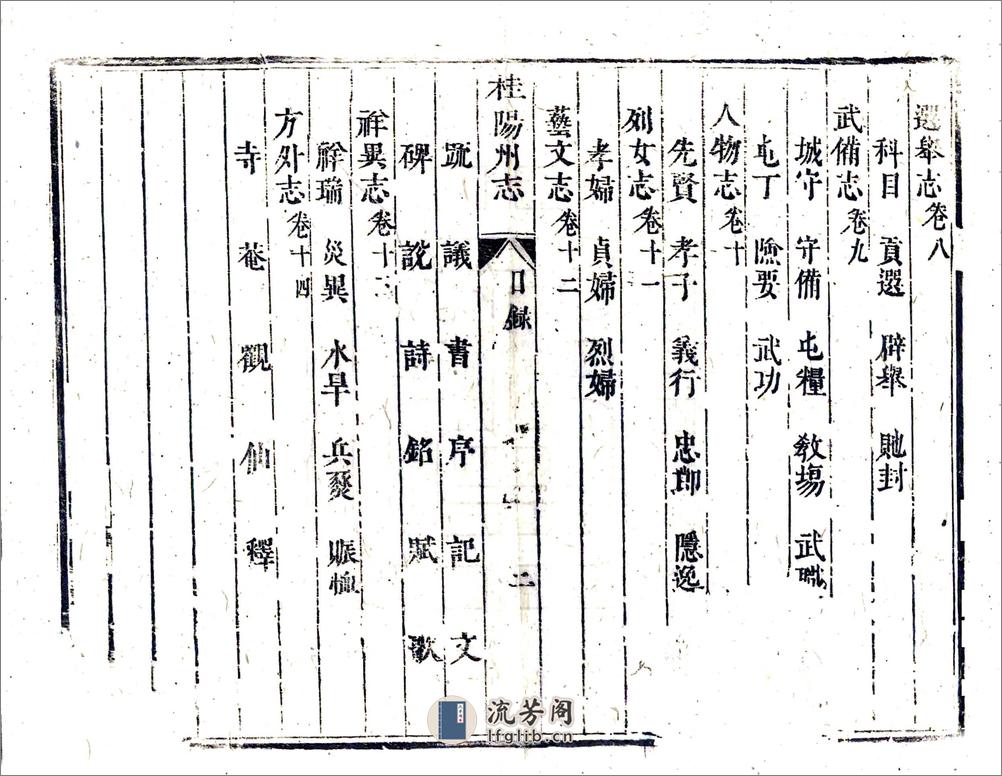 選舉志卷八
科目 貢選 辟舉 貤封
武備志卷九
城守 守備 屯糧 教塲 武職
屯丁 險要 武功
人物志卷十
先賢 孝子 義行 忠節 隱逸
列女志卷十一
孝婦 貞婦 烈婦
藝文志卷十二
桂陽州志 目録 二
疏 議 書 序 記 文
碑 説 詩 銘 賦 歌
祥異志卷十三
祥瑞 災異 水旱 兵燹 賑恤
方外志卷十四
寺 菴 觀 仙 釋
流芳阁
lfglib.cn